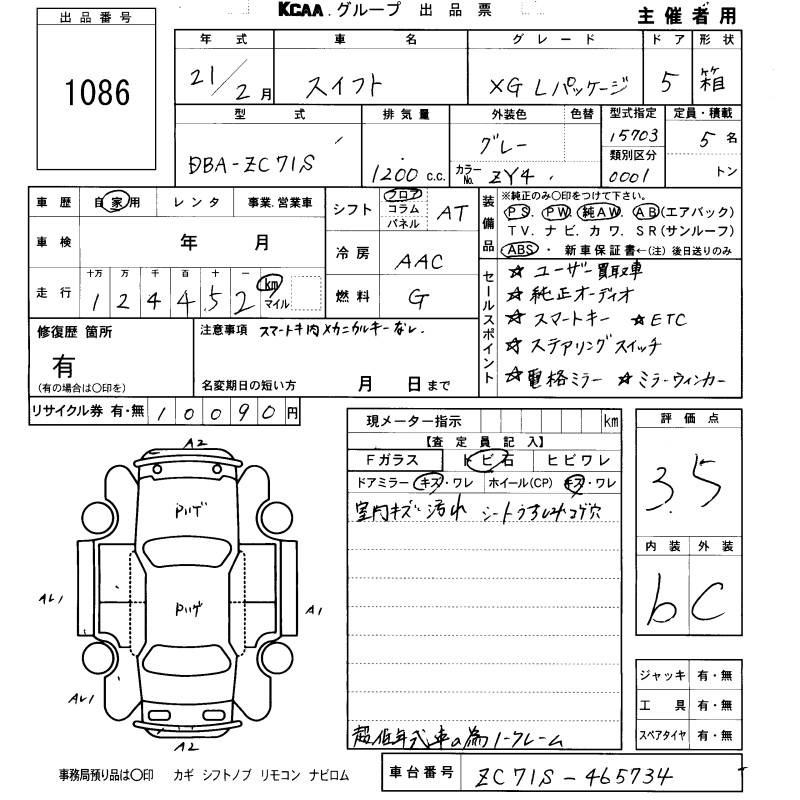 KCAA グループ 出品票
主催者用
出品番号
1086
年式 車名 グレード ドア 形状
21/2月 スイフト XG Lパッケージ 5 箱
型式 排気量 外装色 色替 型式指定 定員・積載
DBA-ZC71S 1200 c.c. グレー 15703 5名
カラーNo. ZY4 類別区分 0001 トン
車歴 自家用 レンタ 事業.営業車
シフト フロア コラム パネル AT
車検 年 月
冷房 AAC
走行 十万 万 千 百 十 一 km マイル
1 2 4 4 5 2
燃料 G
装備品 ※純正のみ〇印をつけて下さい。
PS. PW. 純AW. AB(エアバック)
TV. ナビ. カワ. SR(サンルーフ)
ABS・新車保証書←(注)後日送りのみ
セールスポイント
☆ ユーザー買取車
☆ 純正オーディオ
☆ スマートキー ☆ETC
☆ ステアリングスイッチ
☆ 電格ミラー ☆ミラーウィンカー
修復歴 箇所
有
(有の場合は〇印を)
注意事項 スマートキ内メカニカルキーなし.
名変期日の短い方 月 日まで
リサイクル券 有・無 10090円
現メーター指示 km
【査定員記入】
Fガラス トビ石 ヒビワレ
ドアミラー キズ・ワレ ホイール(CP) キズ・ワレ
室内キズ 汚れ シートうすしみコゲ穴
超低年式車の為ノークレーム
評価点
3.5
内装 外装
b C
ジャッキ 有・無
工具 有・無
スペアタイヤ 有・無
A2
Pハゲ
Pハゲ
AL1
A1
AL1
A2
事務局預り品は〇印 カギ シフトノブ リモコン ナビロム
車台番号 ZC71S-465734